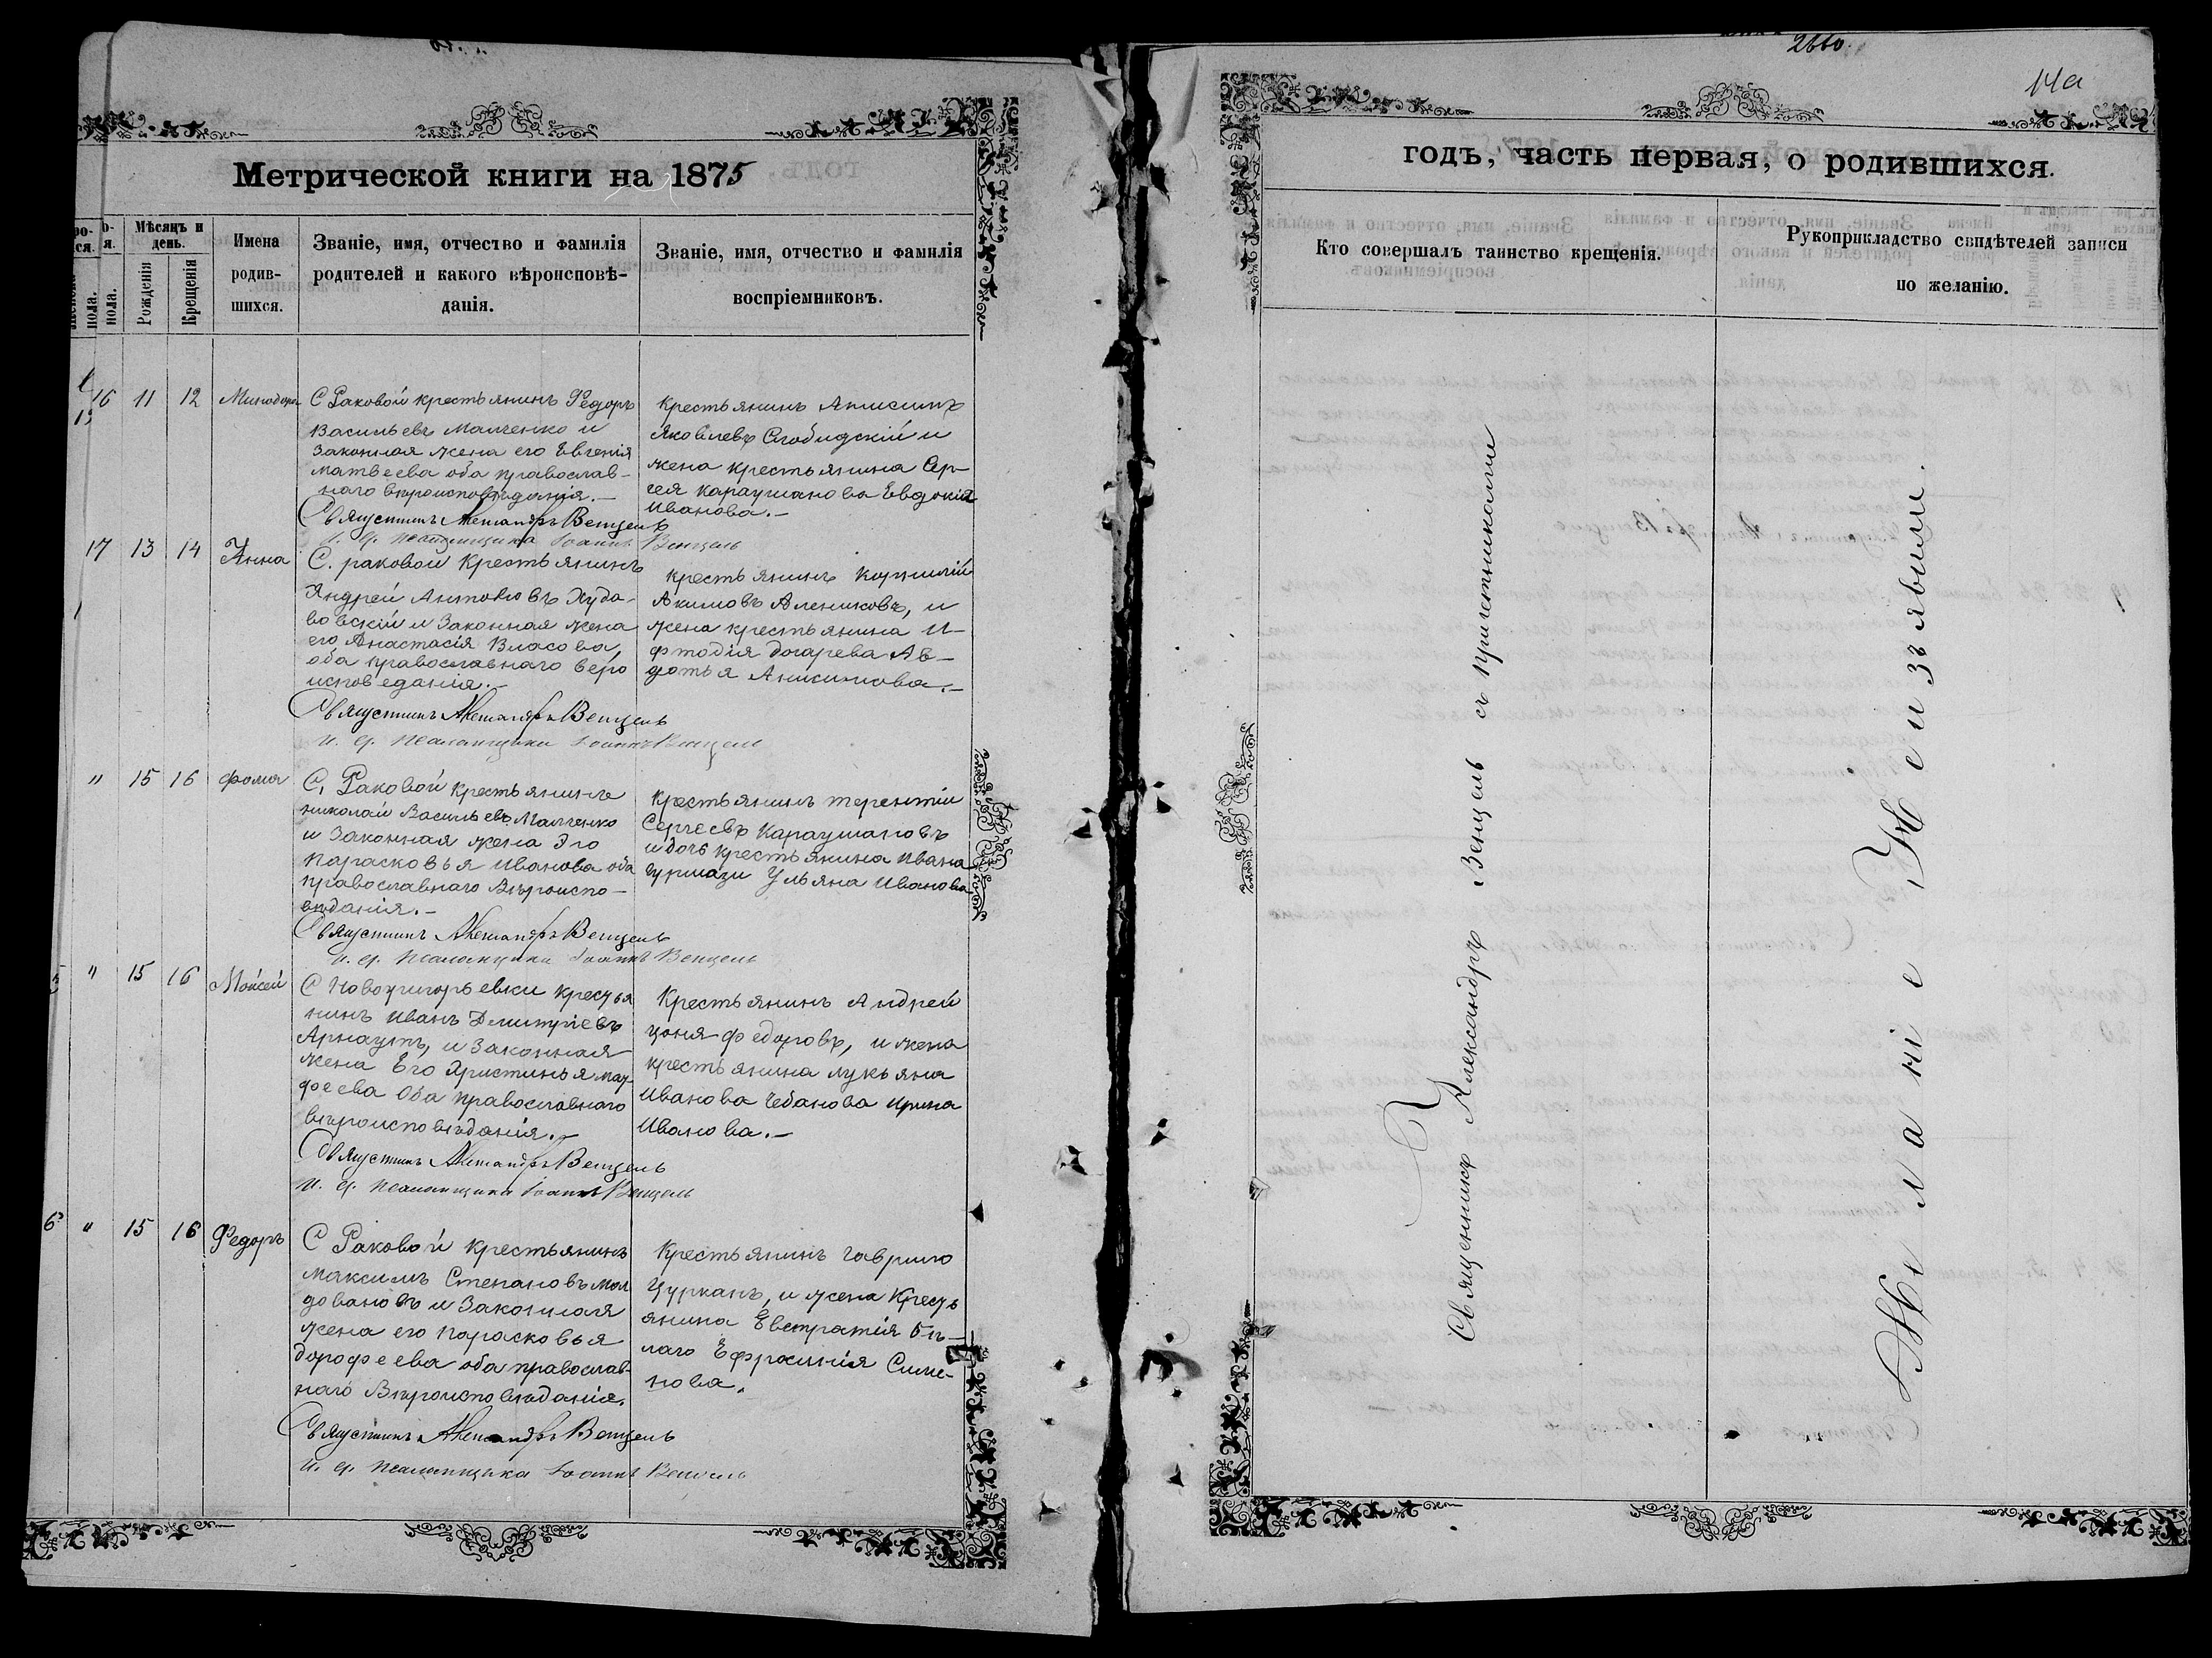 2660.
14а
Метрической книги на 1875
Мѣсяцъ и день.
Рожденія
Крещенія
пола.
пола.
Имена родив-
шихся.
Званіе, имя, отчество и фамилія
родителей и какого вѣроисповѣ-
данія.
Званіе, имя, отчество и фамилія
воспріемниковъ.
16 11 12 Минодора
С Раковой крестьянинъ Федоръ
Васильевъ Малченко и
Законная жена его Евгенія
Матвеева оба православ-
наго вѣроисповѣданія.—
Крестьянинъ Анисимъ
Яковлевъ Слободскій и
жена крестьянина Сер-
гея Караушанова Евдокія
Иванова.—
Священникъ Александръ Венцель
И. д. псаломщика Іоаннъ Венцель
17 13 14 Анна
С. раковой Крестьянинъ
Андрей Антоновъ Худо-
вовскій и Законная жена
его Анастасія Власова,
оба православнаго веро
исповеданія.—
крестьянинъ Корнилій
Акимовъ Алениковъ, и
жена крестьянина И-
фтодія Догарева Ав-
дотья Анисимова.—
Священникъ Александръ Венцель
И. д. псаломщика Іоаннъ Венцель
" 15 16 Фома
С. Раковой крестьянинъ
николай Васильевъ Малченко
и Законная жена Эго
Парасковья Иванова оба
православнаго Вѣроиспо-
вѣданія.—
крестьянинъ терентій
Сергеевъ Караушановъ
и дочь крестьянина Ивана
Ульяна Иванова
Священникъ Александръ Венцель
И. д. псаломщика Іоаннъ Венцель
" 15 16 Мойсей
С Новогригорьевки крестья
нинъ Иванъ Дмитріевъ
Арнаутъ, и Законная
жена Его Христинья мат
феева Оба православнаго
вѣроисповѣданія.—
Крестьянинъ Андрей
цоня Федоровъ, и жена
крестьянина лукьяна
Иванова Чебанова Ирина
Иванова.—
Священникъ Александръ Венцель
И. д. псаломщика Іоаннъ Венцель
" 15 16 Федоръ
С Раковой крестьянинъ
максимъ Степановъ мол
довановъ и Законная
жена его Парасковья
дорофеева оба православ
наго Вѣроисповѣданія.
Крестьянинъ Гаврило
Цурканъ, и жена Кресть
янина Евстратія Бѣ-
лаго Ефросинія Симе-
нова.
Священникъ Александръ Венцель
И. д. псаломщика Іоаннъ Венцель
годъ, часть первая, о родившихся.
Кто совершалъ таинство крещенія.
Рукоприкладство свидѣтелей записи
по желанію.
Священникъ Александръ Венцель съ причетниками
Желаніе Не изъявили.